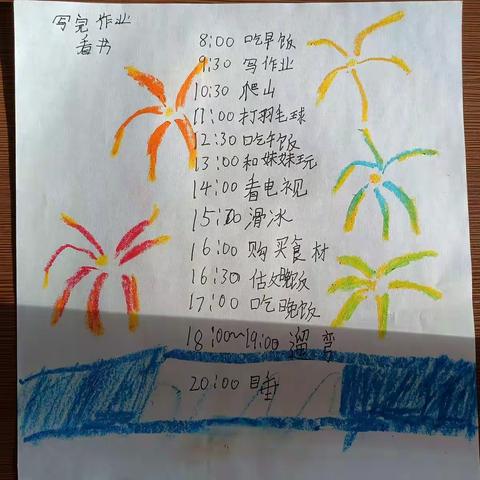 写完作业
看书
8:00 吃早饭
9:30 写作业
10:30 爬山
11:00 打羽毛球
12:30 吃午饭
13:00 和妹妹玩
14:00 看电视
15:00 滑冰
16:00 购买食材
16:30 估文晚饭
17:00 吃晚饭
18:00~19:00 遛弯
20:00 睡